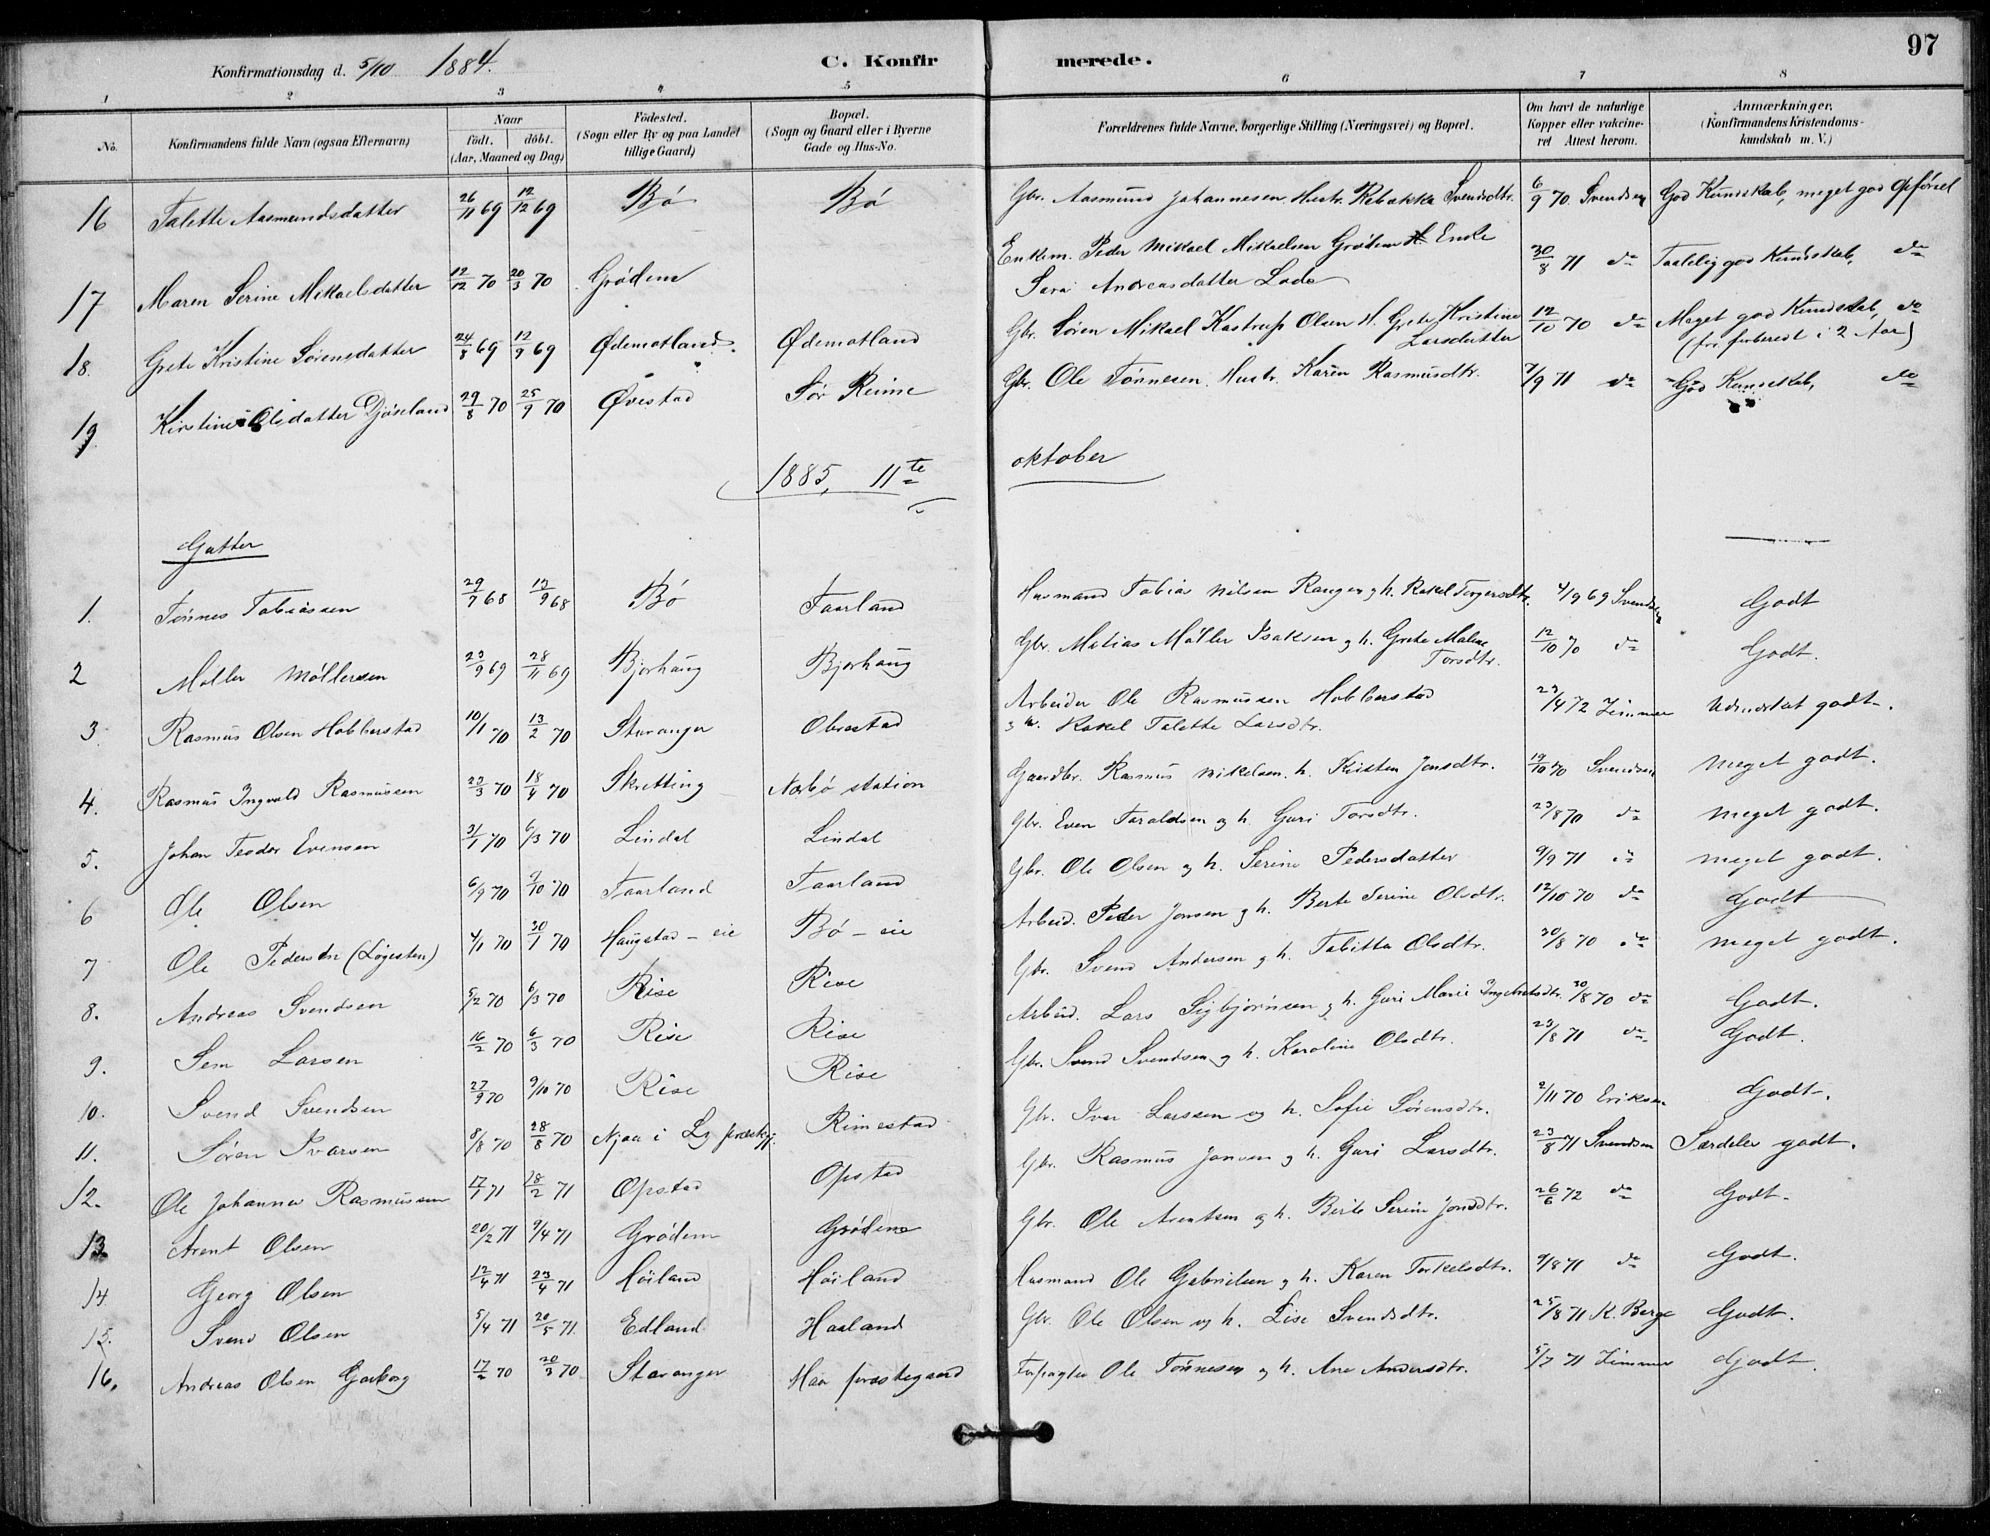 97
Konfirmationsdag d. 5/10 1884.
C. Konfirmerede.
1 2 3 4 5 6 7 8
No. | Konfirmandens fulde Navn (ogsaa Efternavn) | Naar født. døbt. (Aar, Maaned og Dag) | Födested. (Sogn eller By og paa Landet tillige Gaard) | Bopæl. (Sogn og Gaard eller i Byerne Gade og Hus-No. | Forældrenes fulde Navne, borgerlige Stilling (Næringsvei) og Bopæl. | Om havt de naturlige Kopper eller vakcineret Attest herom. | Anmærkninger, (Konfirmandens Kristendomskundskab m. V.)
16 Talette Aasmundsdatter 26/11 69 12/12 69 Bø Bø Gbr. Aasmund Johannesen Hustr. Rebakka Svendsdtr. 6/9 70 Svendsen God Kundskab, meget god Opførsel
17 Maren Serine Mikaelsdatter 12/12 70 20/3 70 Grødem Enkem. Peder Mikael Mikaelsen Grødem Enke
Sara Andreasdatter Lode 30/8 71 do Taalelig god Kundskab, do
18. Grete Kristine Sørensdatter 24/8 69 12/9 69 Ødemotland Ødemotland Gbr. Søren Mikael Kastrup Olsen H. Grete Kristine
Larsdatter 12/10 70 do Meget god Kundskab, do
(fri forberedt i 2 Aar)
19. Kirstine Olsdatter Djøseland 29/8 70 25/9 70 Øvestad Sør Reime Gbr. Ole Tønnesen. Hustr. Karen Rasmusdtr. 7/9 71 do God Kundskab, do
1885, 11te oktober
Gutter
1. Tønnes Tobiassen 29/7 68 13/9 68 Bø Taarland Husmand Tobias Nilsen Rangen og h. Rakel Torgersdtr. 4/9 69 Svendsen Godt
2 Møller Møllersen 23/9 69 28/11 69 Bjorhaug Bjorhaug Gbr. Matias Møller Isaksen og h. Grete Malene
Torsdtr. 12/10 70 do Godt.
3. Rasmus Olsen Hobberstad 10/1 70 13/2 70 Stavanger Obrestad Arbeider Ole Rasmussen Hobberstad
og h. Rakel Talette Larsdtr. 23/4 72 Zimmer Udmerket godt.
4. Rasmus Ingvald Rasmussen 23/3 70 18/4 70 Skretting Nærbø station Gaardbr. Rasmus Mikelsen. h. Kristen Jonsdtr. 19/10 70 Svendsen Meget godt.
5. Johan Teodor Evensen 31/1 70 6/3 70 Lindal Lindal Gbr. Even Taraldsen og h. Guri Torsdtr. 23/8 70 do Meget godt.
6 Ole Olsen 6/9 70 2/10 70 Taarland Taarland Gbr. Ole Olsen og h. Serine Pedersdatter 9/9 71 do Meget godt.
7 Ole Pedersen (Løgesten) 4/1 70 30/1 70 Haugstad - eie Bø - eie Arbeid. Peder Jonsen og h. Berte Serine Olsdtr. 12/10 70 do Godt
8. Andreas Svendsen 5/2 70 6/3 70 Rise Rise Gbr. Svend Andersen og h. Tabitta Olsdtr. 20/8 70 do Meget godt.
9. Sem Larsen 16/2 70 6/3 70 Rise Rise Arbeid. Lars Sigbjørnsen og h. Guri Marie Ingebretsdtr. 20/8 70 do Godt.
10. Svend Svendsen 27/9 70 9/10 70 Rise Rise Gbr. Svend Svendsen og h. Karoline Olsdtr. 23/8 71 do Godt.
11. Søren Ivarsen 8/8 70 28/8 70 Njaa i Ly præstegj. Rimestad Gbr. Ivar Larssen og h. Sofie Sørensdtr. 2/11 70 Eriksen Godt.
12. Ole Johannes Rasmussen 17/1 71 18/2 71 Opstad Opstad Gbr. Rasmus Jonsen og h. Guri Larsdtr. 23/8 71 Svendsen Særdeles godt.
13 Arent Olsen 20/2 71 9/4 71 Grødem Grødem Gbr. Ole Arentsen og h. Berte Serine Jonsdtr. 26/6 72 do Godt.
14 Georg Olsen 12/4 71 23/4 71 Høiland Høiland Husmand Ole Gabrielsen og h. Karen Torkelsdtr. 9/8 71 do Godt.
15. Svend Olsen 5/4 71 20/5 71. Edland Haaland Gbr. Ole Olsen og h. Lise Svendsdtr. 25/8 71 K. Berge Godt.
16. Andreas Olsen Garborg 17/2 70 20/3 70 Stavanger Haa præstegaard Forpagter Ole Tønnesen og h. Ane Andersdtr. 5/7 71 Zimmer Godt.